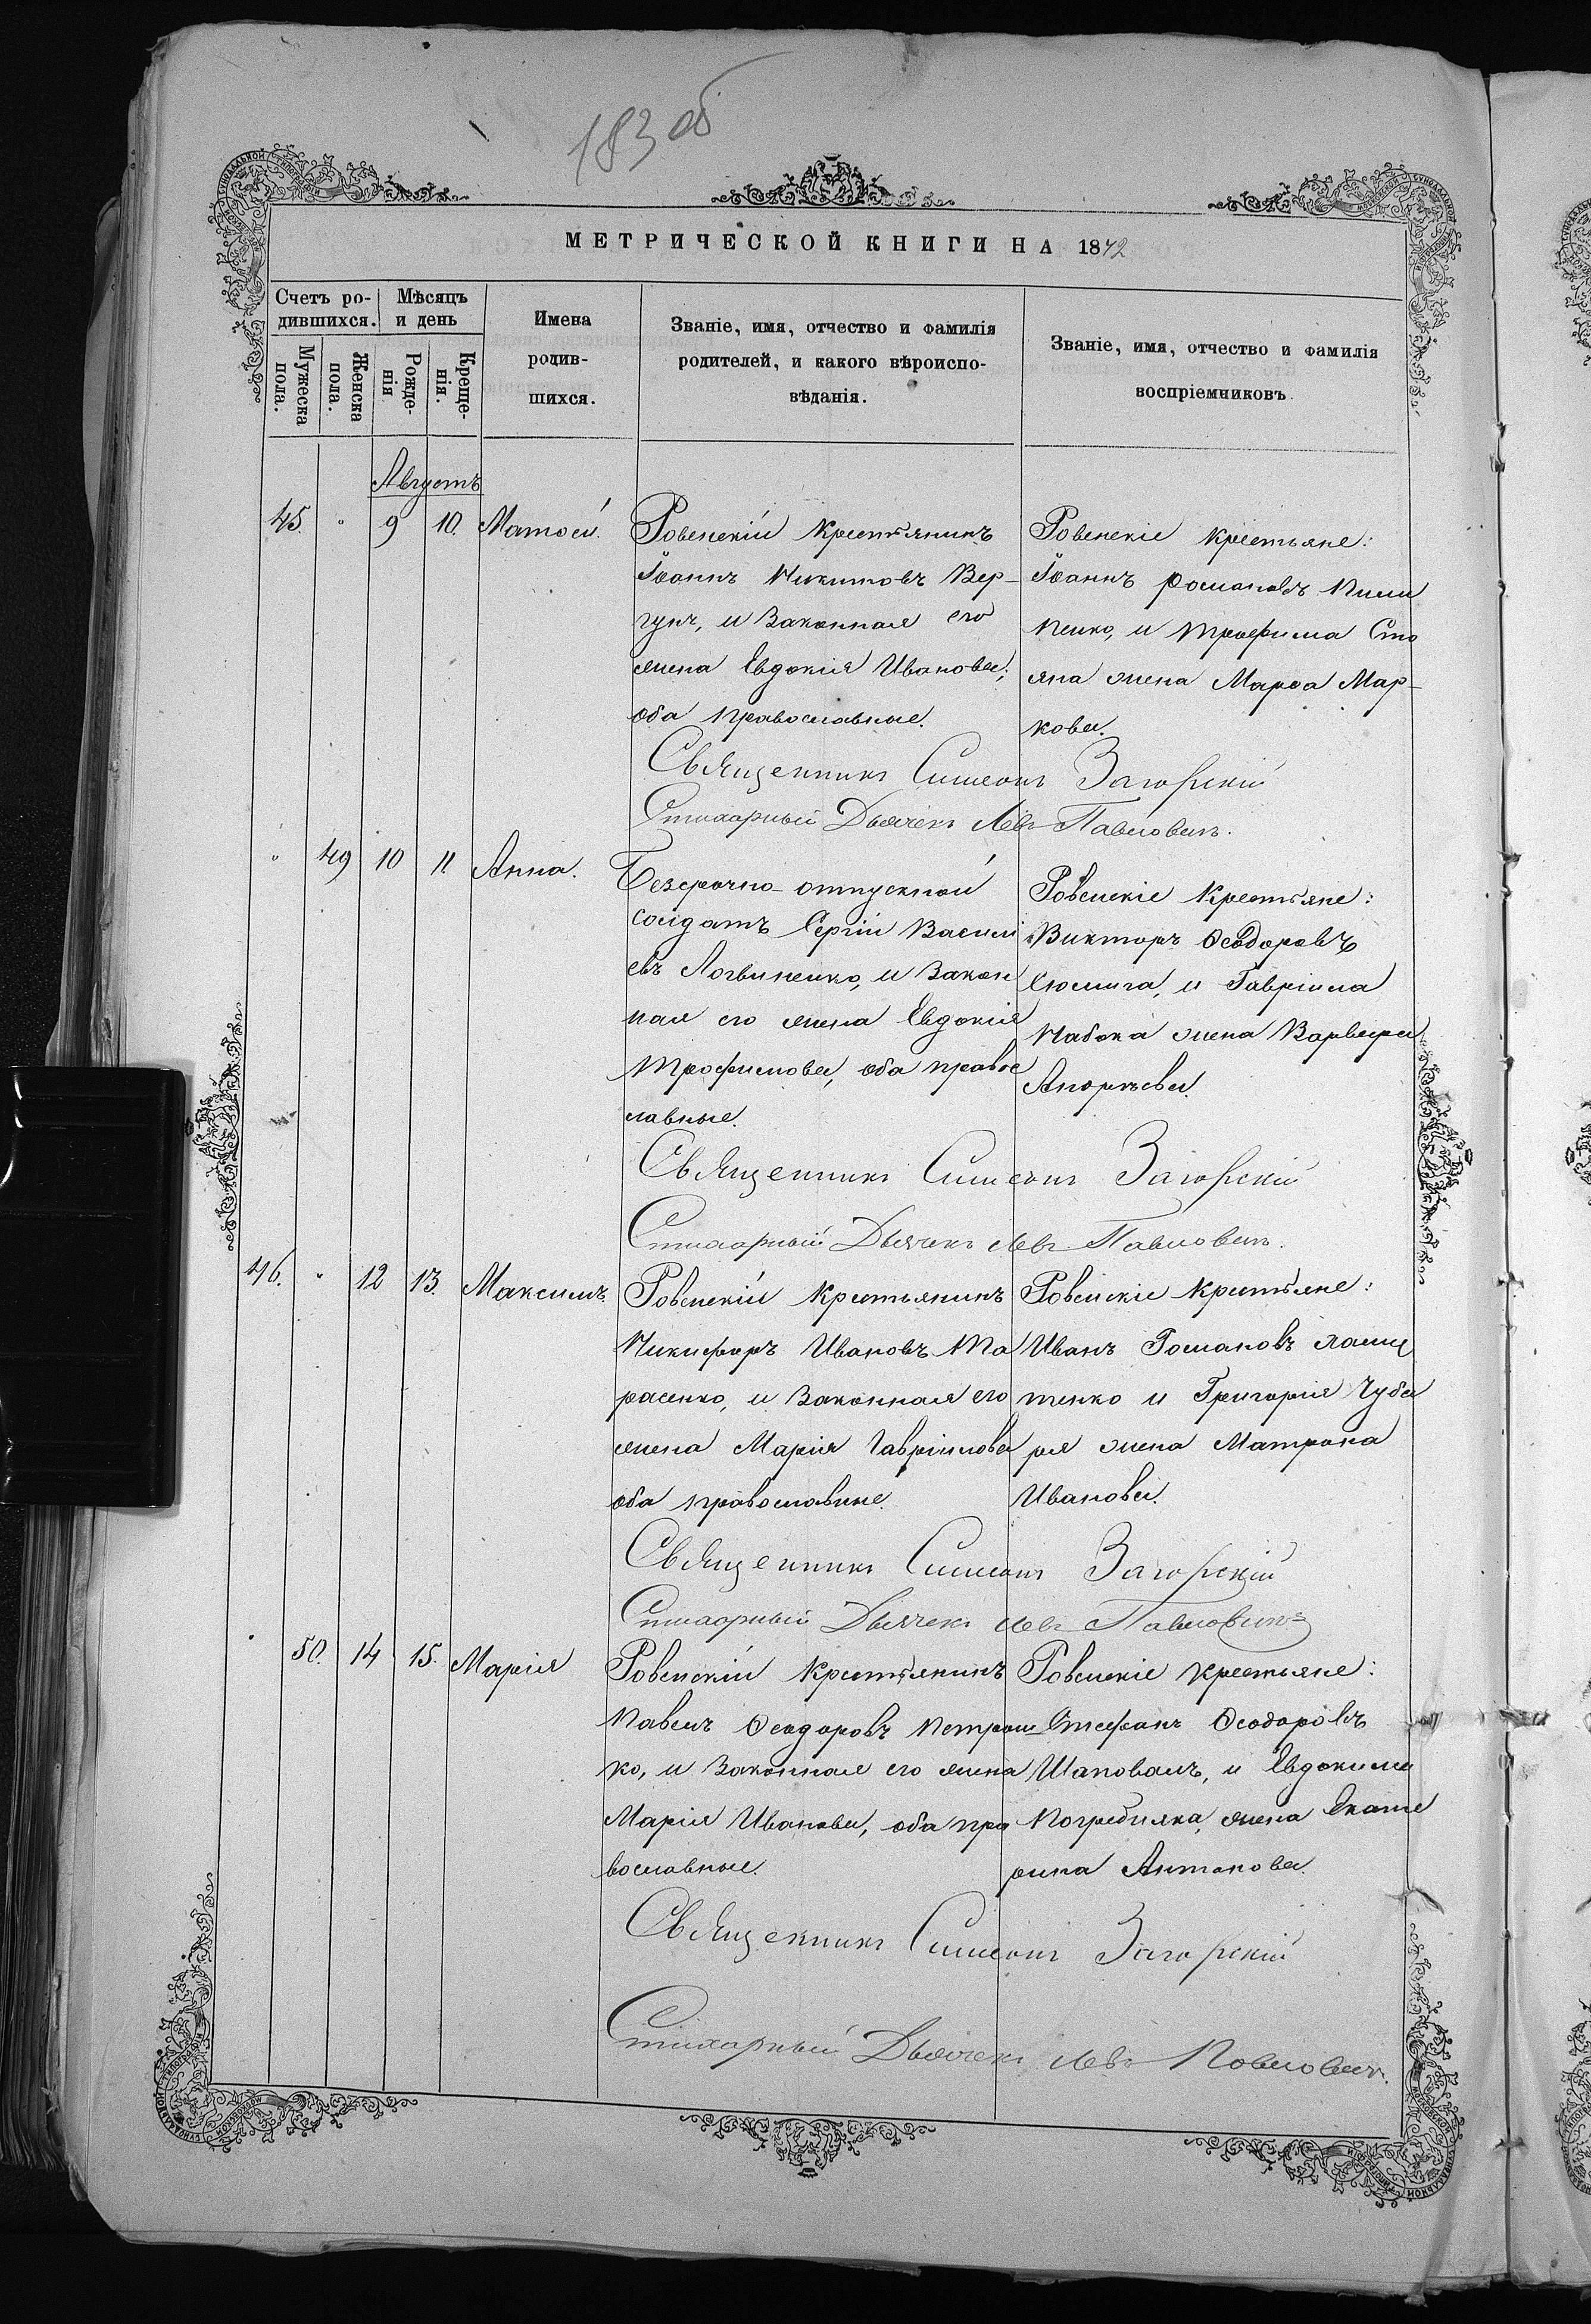 183 об
МЕТРИЧЕСКОЙ КНИГИ НА 1872
Счетъ ро-
дившихся.
Мѣсяцъ
и день
Мужеска
пола.
Женска
пола.
Рожде-
нія
Креще-
нія.
Имена
родив-
шихся.
Званіе, имя, отчество и фамилія
родителей, и какого вѣроиспо-
вѣданія.
Званіе, имя, отчество и фамилія
воспріемниковъ.
Августъ
45. " 9 10. Матѳей.
Ровенскій крестьянинъ
Іоаннъ Никитовъ Вер-
гунъ, и законная его
жена Евдокія Иванова;
оба православные.
Ровенскіе крестьяне:
Іоаннъ Романовъ Пили
пенко, и Трофима Сто
яна жена Марѳа Мар-
кова.
Священникъ Симеонъ Загорскій
Стихарный Дьячекъ Левъ Павловичъ.
" 49 10 11 Анна.
Безсрочно-отпускной
солдатъ Сергій Васили
евъ Логвиненко, и закон
ная его жена Евдокія
Трофимова, оба право
славные.
Ровенскіе крестьяне:
Викторъ Ѳеодоровъ
и Гавріила
Набока жена Варвара
Андреева.
Священникъ Симеонъ Загорскій
Стихарный Дьячекъ Левъ Павловичъ.
46. " 12 13. Максимъ
Ровенскій крестьянинъ
Никифоръ Ивановъ Та
расенко, и законная его
жена Марія Гавріилова
оба православные.
Ровенскіе крестьяне:
Иванъ Романовъ
тенко и Григорія Чуба
ря жена Матрона
Иванова.
Священникъ Симеонъ Загорскій
Стихарный Дьячекъ Левъ Павловичъ
" 50. 14 15. Марія
Ровенскій крестьянинъ
Павелъ Ѳеодоровъ Петрен
ко, и законная его жена
Марія Иванова, оба пра
вославные.
Ровенскіе крестьяне:
Стефанъ Ѳеодоровъ
Шаповалъ, и Евдокима
Погребняка, жена Екате
рина Антонова.
Священникъ Симеонъ Загорскій
Стихарный Дьячекъ Левъ Павловичъ.